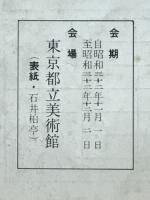 会期
自昭和三十二年十一月一日
至昭和三十二年十二月二日
会場
東京都立美術館
(表紙・石井柏亭)